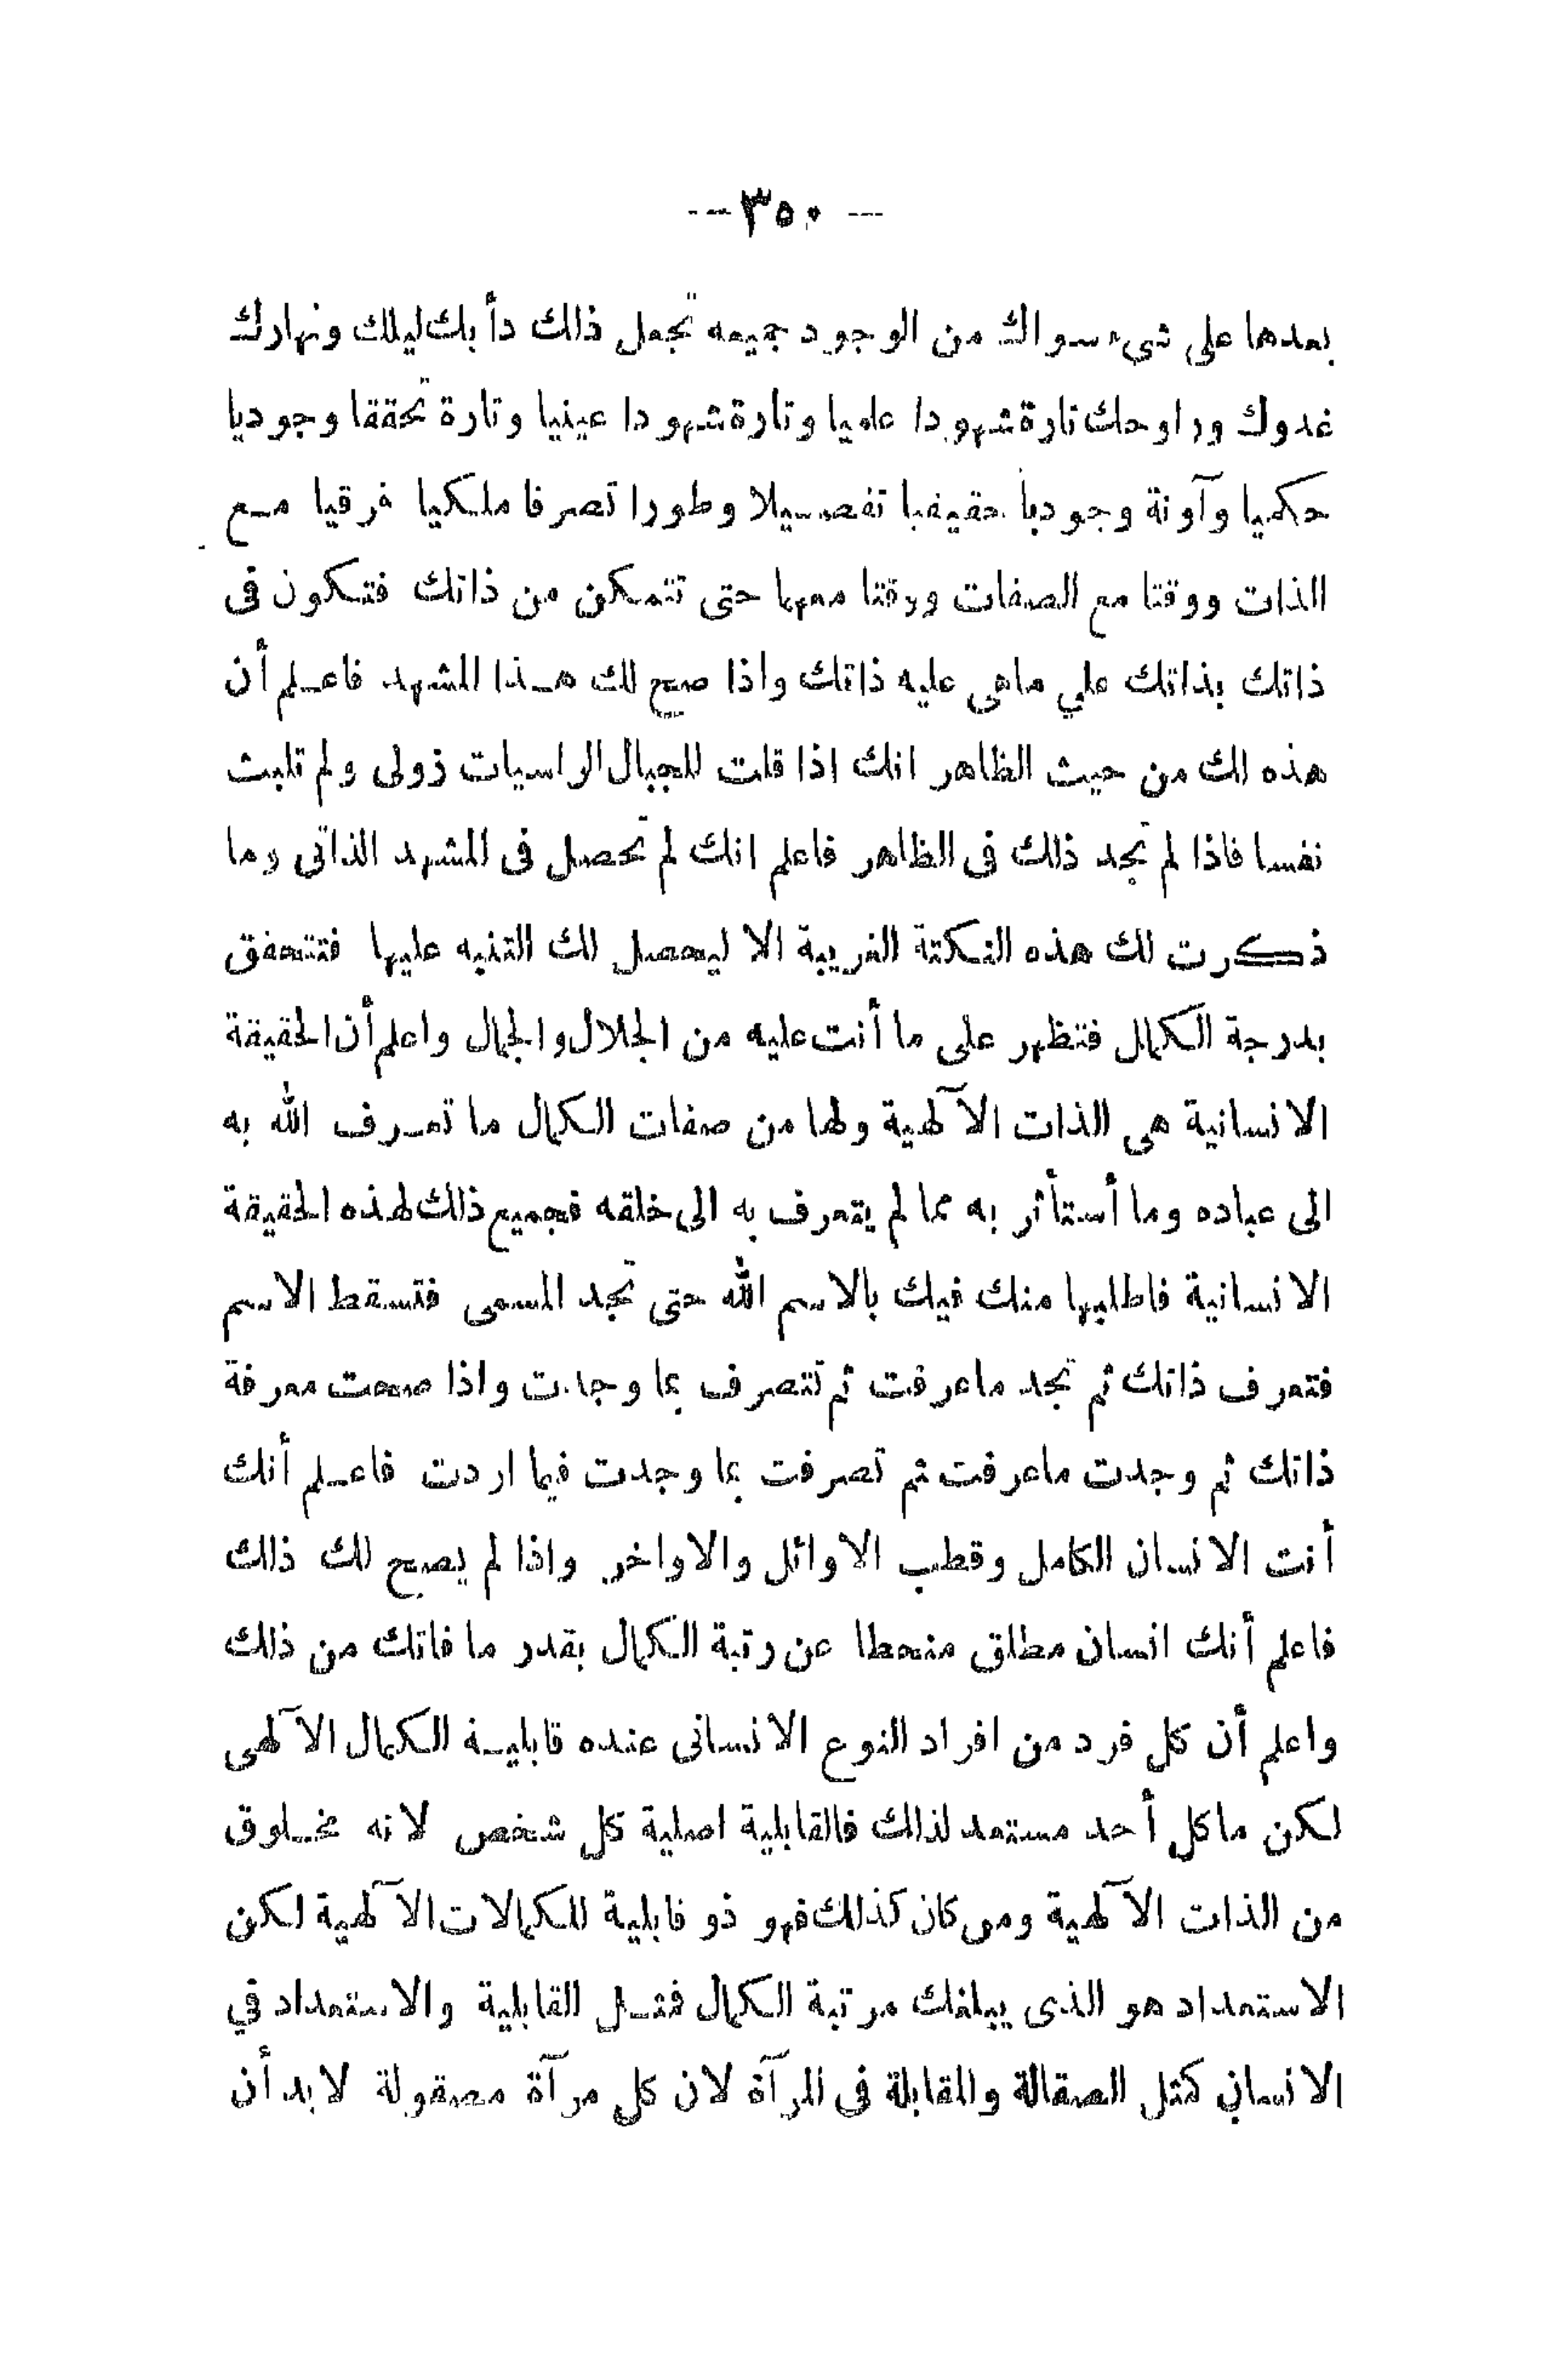 --- ٣٥٠ ---
بعدها على شىء سواك من الوجود جميعه تجعل ذلك دأبك ليلك ونهارك
غدوك ورواحك تارة شهودا علميا وتارة شهودا عينيا وتارة تحققا وجوديا
حكميا وآونة وجوديا حقيقيا تفصيلا وطورا تصرفا ملكيا فرقيا مع
الذات ووقتا مع الصفات ووقتا معهما حتى تتمكن من ذاتك فتكون فى
ذاتك بذاتك علي ماهى عليه ذاتك واذا صح لك هذا المشهد فاعلم أن
هذه لك من حيث الظاهر انك اذا قلت للجبال الراسيات زولى ولم تلبث
نفسا فاذا لم تجد ذلك فى الظاهر فاعلم انك لم تحصل فى المشهد الذاتى وما
ذكرت لك هذه النكتة الغريبة الا ليحصل لك التنبه عليها فتتحقق
بدرجة الكمال فتظهر على ما أنت عليه من الجلال والجمال واعلم أن الحقيقة
الانسانية هى الذات الآلهية ولها من صفات الكمال ما تعرف الله به
الى عباده وما أستأثر به مما لم يتعرف به الى خلقه فجميع ذلك لهذه الحقيقة
الانسانية فاطلبها منك فيك بالاسم الله حتى تجد المسمى فتسقط الاسم
فتعرف ذاتك ثم تجد ماعرفت ثم تتصرف بما وجدت واذا صحت معرفة
ذاتك ثم وجدت ماعرفت ثم تصرفت بما وجدت فيما اردت فاعلم أنك
أنت الانسان الكامل وقطب الاوائل والاواخر واذا لم يصح لك ذلك
فاعلم أنك انسان مطلق منحطا عن رتبة الكمال بقدر ما فاتك من ذلك
واعلم أن كل فرد من افراد النوع الانسانى عنده قابلية الكمال الآلهى
لكن ماكل أحد مستعد لذلك فالقابلية اصلية كل شخص لانه مخلوق
من الذات الآلهية ومن كان كذلك فهو ذو قابلية للكمالات الآلهية لكن
الاستعداد هو الذى يبلغك مرتبة الكمال فمثل القابلية والاستعداد في
الانسان كمثل الصقالة والمقابلة فى المرآة لان كل مرآة مصقولة لابد أن